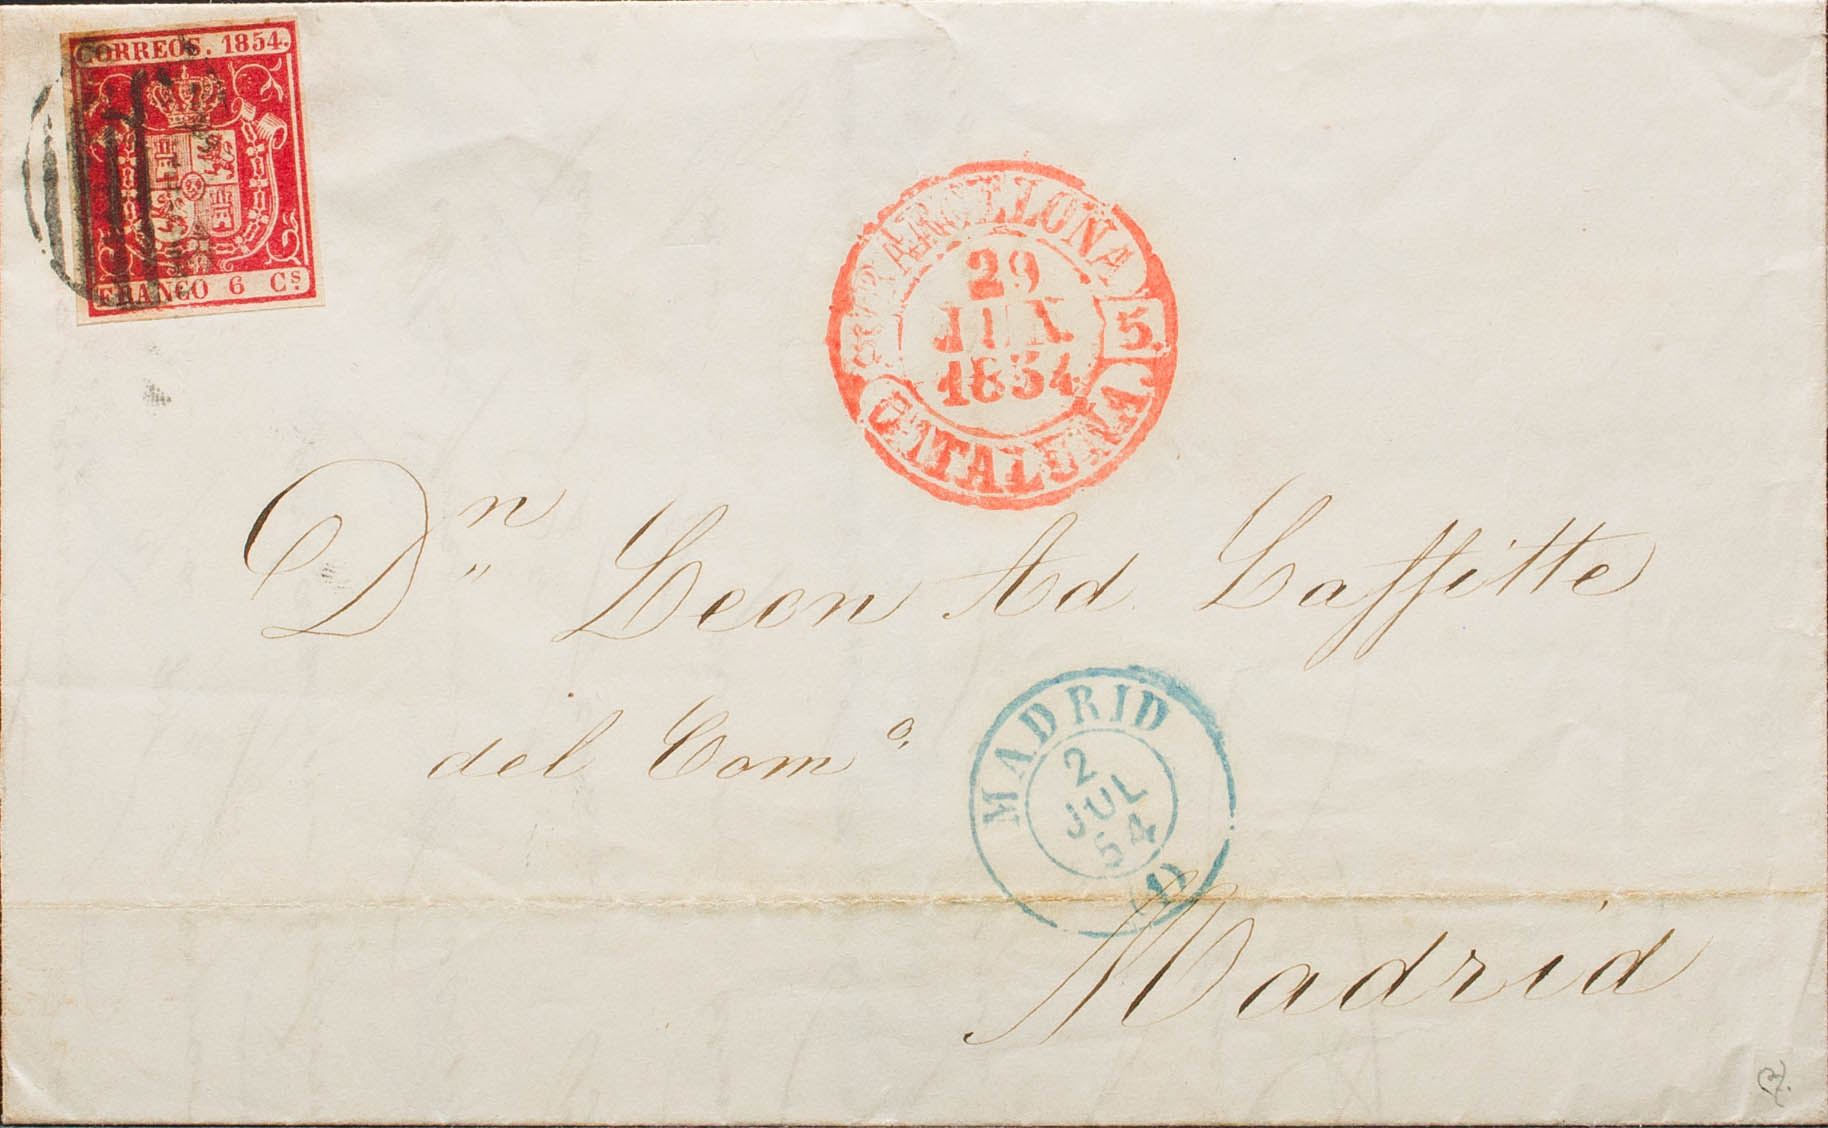 CORREOS. 1854.
FRANCO 6 Cs.
BARCELLONA
29
JUN
1854
5.
CATALUNA.
Dn Leon Ad. Laffitte
del Como,
MADRID
2
JUL
54
(1)
Madrid